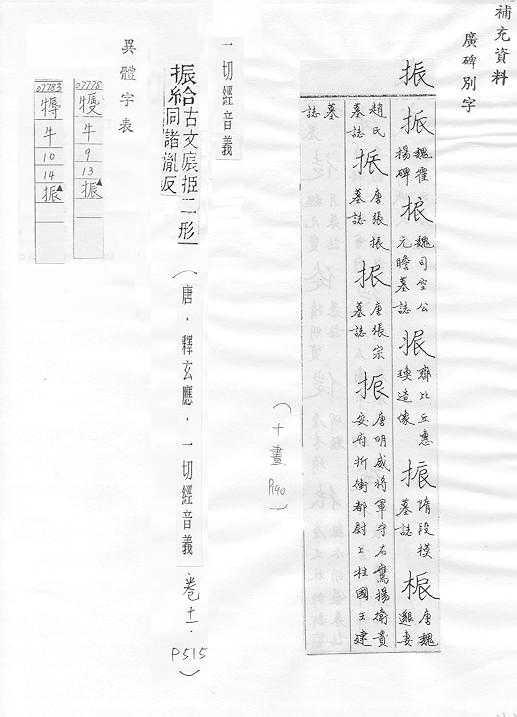 補充資料
廣碑別字
振
振 魏霍揚碑 魏司空公元瞻墓誌 齊比丘惠瑍造像 隋段模墓誌 唐魏邈妻
趙氏墓誌 振 唐張振墓誌 振 唐張宗墓誌 振 唐明威將軍守右鷹揚衛貴安府折衝都尉上柱國王建
墓誌
(十畫 P190)
一切經音義
振給 古文 二形
同諸胤反
(唐.釋玄應.一切經音義 卷十一. P515)
異體字表
07775
牛
9
13
振▲
07783
牛
10
14
振▲